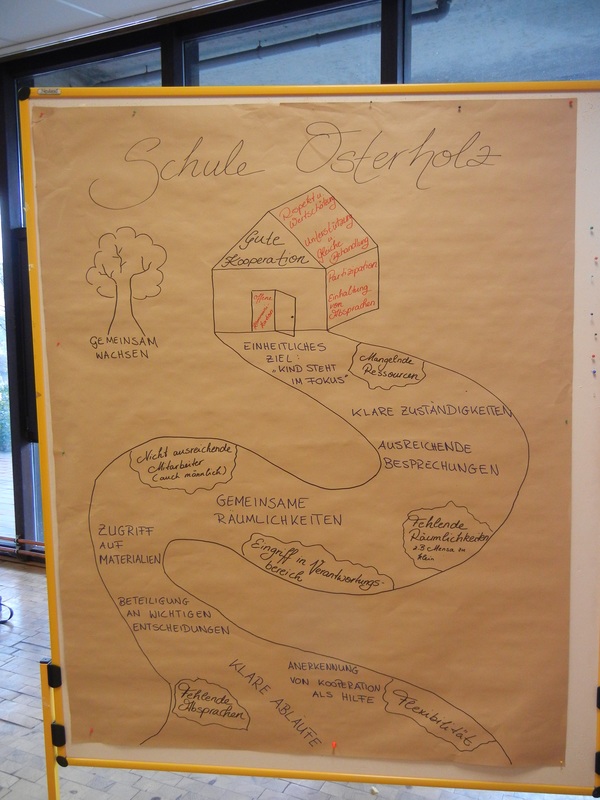 Schule Osterholz
Gute
Kooperation
Respekt u.
Wertschätzung
Unterstützung
u.
Gleiche
Behandlung
Partizipation
Einhaltung
von
Absprachen
Offene
GEMEINSAM
WACHSEN
EINHEITLICHES
ZIEL:
"KIND STEHT
IM FOKUS"
Mangelnde
Ressourcen
KLARE ZUSTÄNDIGKEITEN
AUSREICHENDE
BESPRECHUNGEN
Nicht ausreichende
Mitarbeiter
(auch männlich)
GEMEINSAME
RÄUMLICHKEITEN
Fehlende
Räumlichkeiten
z.B Mensa zu
klein
ZUGRIFF
AUF
MATERIALIEN
Eingriff in Verantwortungs-
bereich
BETEILIGUNG
AN WICHTIGEN
ENTSCHEIDUNGEN
ANERKENNUNG
VON KOOPERATION
ALS HILFE
KLARE ABLÄUFE
Fehlende
Absprachen
Flexibilität